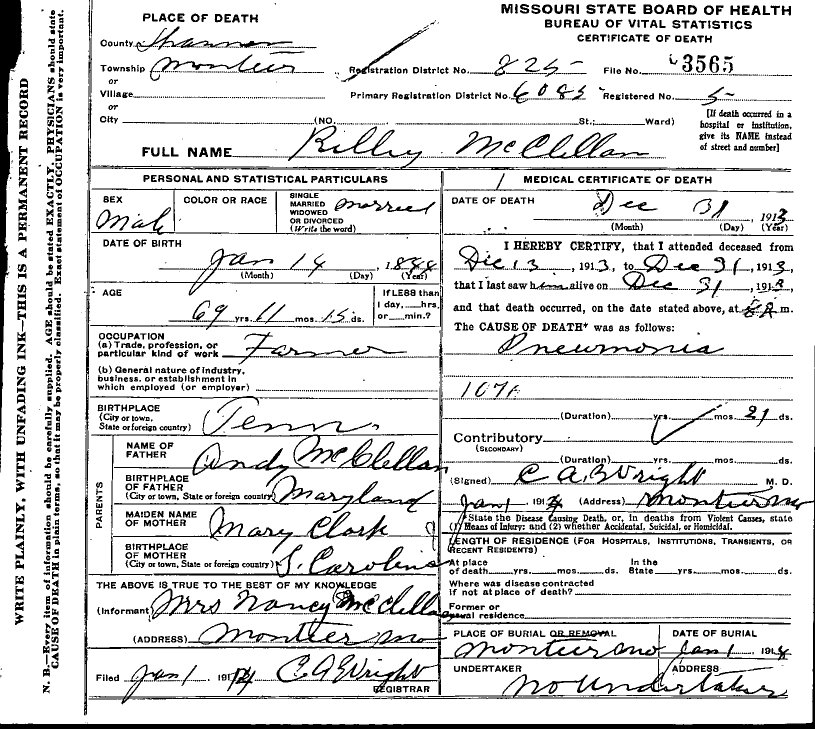 MISSOURI STATE BOARD OF HEALTH
BUREAU OF VITAL STATISTICS
CERTIFICATE OF DEATH
PLACE OF DEATH
County Shannon
Township Montier
or
Village
or
City (NO. St.; Ward)
Registration District No. 825 File No. 3565
Primary Registration District No. 6085 Registered No. 5
[If death occurred in a hospital or institution, give its NAME instead of street and number]
FULL NAME Rilley McClellan
PERSONAL AND STATISTICAL PARTICULARS
SEX Male
COLOR OR RACE
SINGLE MARRIED WIDOWED OR DIVORCED (Write the word) married
DATE OF BIRTH
Jan 14, 1844
(Month) (Day) (Year)
AGE
69 yrs. 11 mos. 15 ds.
If LESS than 1 day, hrs. or min.?
OCCUPATION
(a) Trade, profession, or particular kind of work Farmer
(b) General nature of industry, business, or establishment in which employed (or employer)
BIRTHPLACE
(City or town, State or foreign country) Tenn.
PARENTS
NAME OF FATHER Andy McClellan
BIRTHPLACE OF FATHER
(City or town, State or foreign country) Maryland
MAIDEN NAME OF MOTHER Mary Clark
BIRTHPLACE OF MOTHER
(City or town, State or foreign country) S. Carolina
THE ABOVE IS TRUE TO THE BEST OF MY KNOWLEDGE
(Informant) Mrs Nancy McClellan
(ADDRESS) Montier Mo
Filed Jan 1 1914 C A Wright
REGISTRAR
MEDICAL CERTIFICATE OF DEATH
DATE OF DEATH Dec 31, 1913
(Month) (Day) (Year)
I HEREBY CERTIFY, that I attended deceased from
Dec 13, 1913, to Dec 31, 1913,
that I last saw him alive on Dec 31, 1913,
and that death occurred, on the date stated above, at m.
The CAUSE OF DEATH* was as follows:
Pneumonia
107A
(Duration) yrs. mos. 21 ds.
Contributory
(SECONDARY)
(Duration) yrs. mos. ds.
(Signed) C A Wright M. D.
Jan 1 1914 (Address) Montier Mo
*State the Disease Causing Death, or, in deaths from Violent Causes, state
(1) Means of Injury; and (2) whether Accidental, Suicidal, or Homicidal.
LENGTH OF RESIDENCE (For Hospitals, Institutions, Transients, or Recent Residents)
At place of death yrs. mos. ds. In the State yrs. mos. ds.
Where was disease contracted if not at place of death?
Former or usual residence
PLACE OF BURIAL OR REMOVAL DATE OF BURIAL
Montier Mo Jan 1 1914
UNDERTAKER ADDRESS
No Undertaker
WRITE PLAINLY, WITH UNFADING INK—THIS IS A PERMANENT RECORD
N. B.—Every item of information should be carefully supplied. AGE should be stated EXACTLY. PHYSICIANS should state
CAUSE OF DEATH in plain terms, so that it may be properly classified. Exact statement of OCCUPATION is very important.